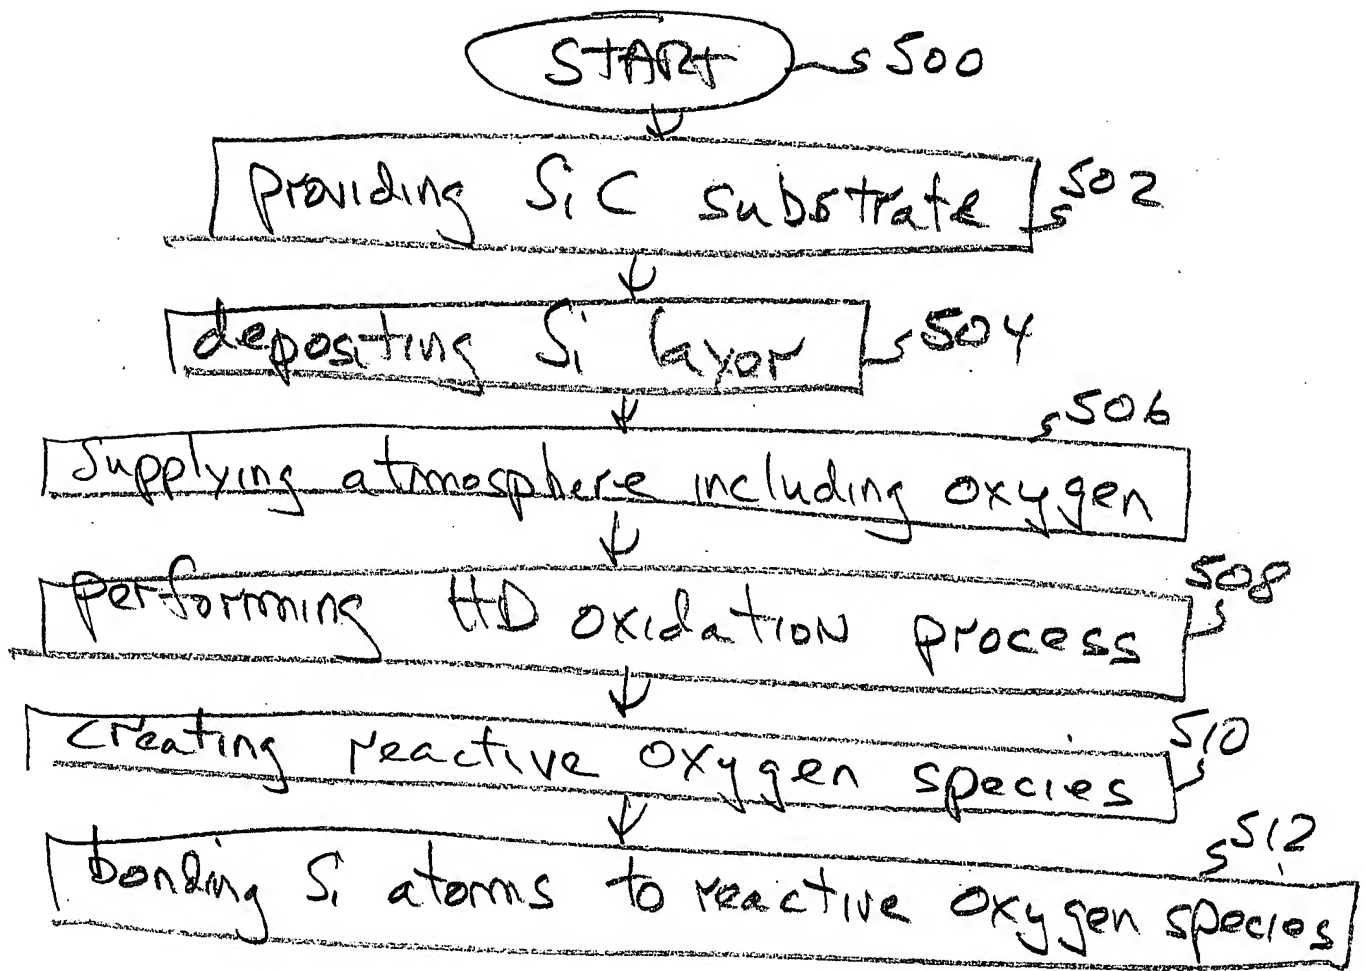 START 500
providing SiC substrate 502
depositing Si layer 504
506
Supplying atmosphere including oxygen
508
performing HD oxidation process
510
creating reactive oxygen species
512
bonding Si atoms to reactive oxygen species